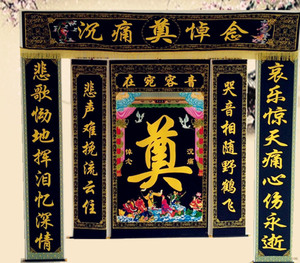 沉痛奠悼念
音容宛在
哀乐惊天痛心伤永逝
哭音相随野鹤飞
悲声难挽流云住
悲歌恸地挥泪忆深情
奠
沉痛
悼念